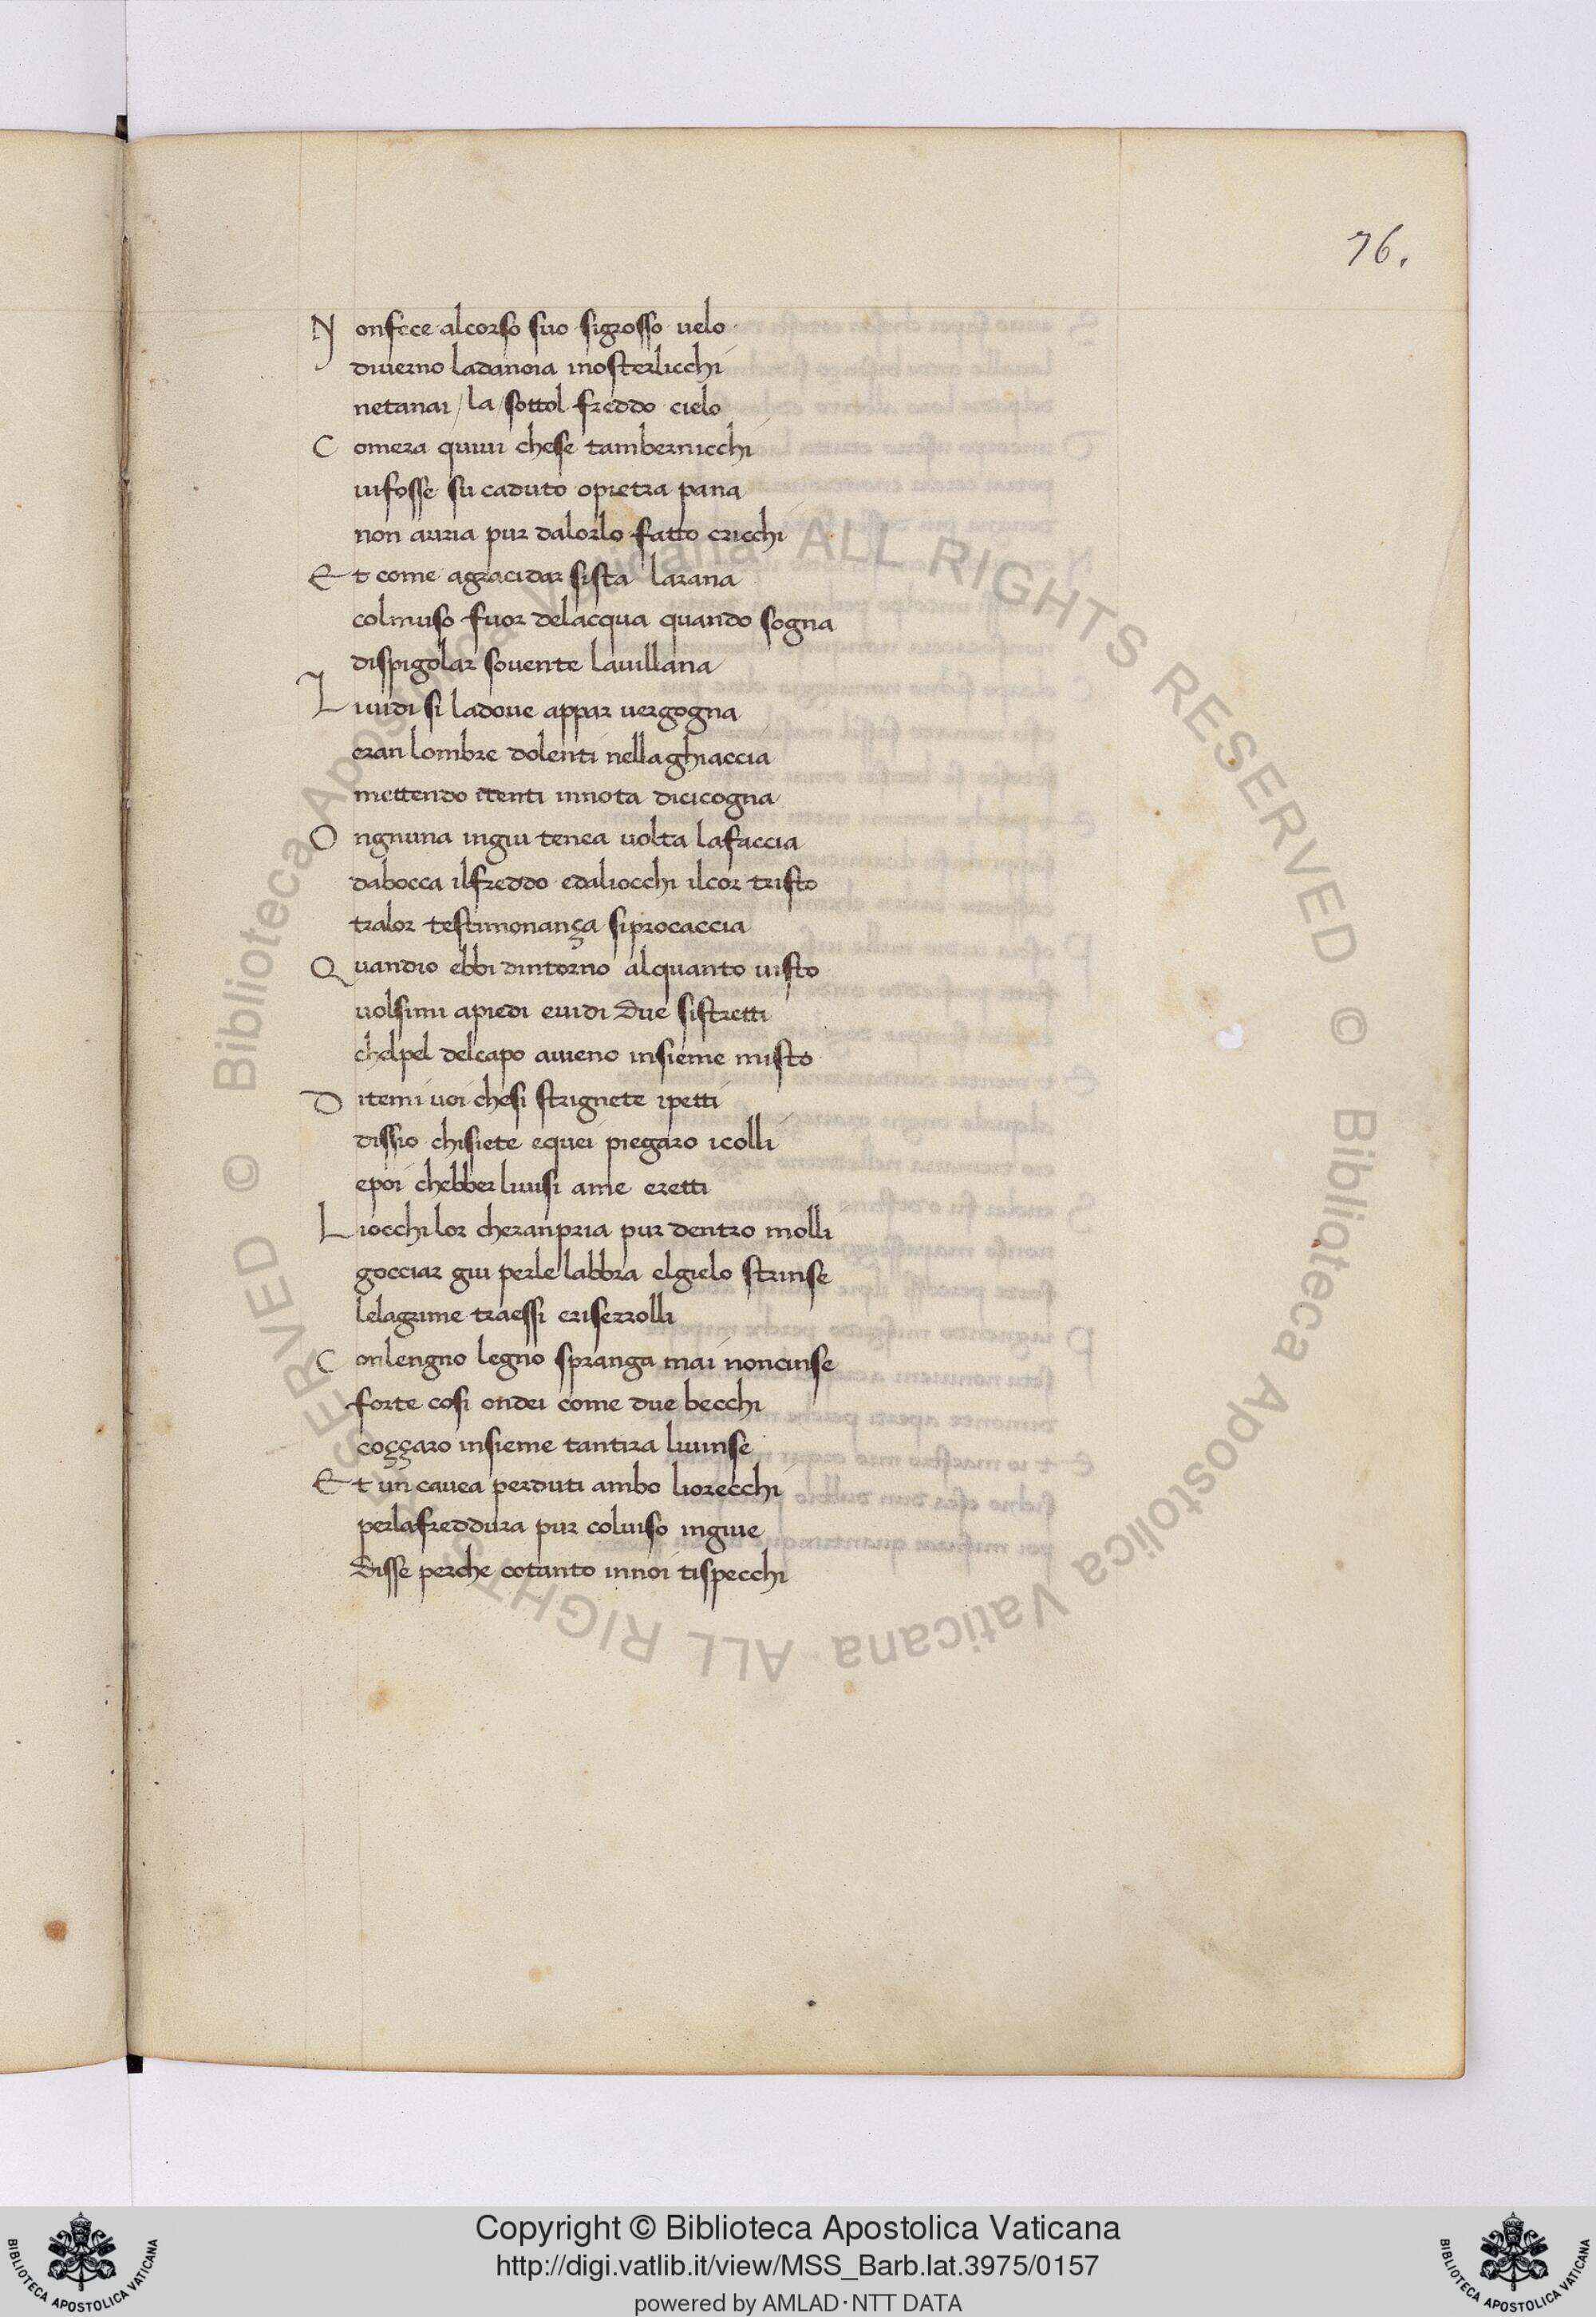 76.
N onfece alcorso suo sigrosso velo
diuerno ladanoia inosterlicchi
netanai / la sottol freddo cielo
C omera quiui chese tambernicchi
uifosse su caduto opietra pana
non auria pur dalorlo fatto cricchi
E t come agracidar sista larana
colmuso fuor delacqua quando sogna
dispigolar souente lauillana
L iuidi si ladoue appar uergogna
eran lombre dolenti nellaghiaccia
mettendo identi innota dicicogna
O ngnuna ingiu tenea uolta lafaccia
dabocca ilfreddo edaliocchi ilcor tristo
tralor testimonança siprocaccia
Q uandio ebbi dintorno alquanto uisto
uolsimi apiedi euidi due sistretti
chelpel delcapo auieno insieme misto
D itemi uoi chesi strignete ipetti
dissio chisiete equei piegaro icolli
epoi chebber liuisi ame eretti
L iocchi lor cheranpria pur dentro molli
gocciar giu perle labbra elgielo strinse
lelagrime traessi eriserrolli
C onlengno legno spranga mai noncinse
forte cosi ondei come due becchi
coççaro insieme tantira liuinse
E t un cauea perduti ambo liorecchi
perlafreddura pur coluiso ingiue
disse perche cotanto innoi tispecchi
© Biblioteca Apostolica Vaticana ALL RIGHTS RESERVED © Biblioteca Apostolica Vaticana ALL RIGHTS RESERVED
Copyright © Biblioteca Apostolica Vaticana
http://digi.vatlib.it/view/MSS_Barb.lat.3975/0157
powered by AMLAD·NTT DATA
BIBLIOTECA APOSTOLICA VATICANA
BIBLIOTECA APOSTOLICA VATICANA